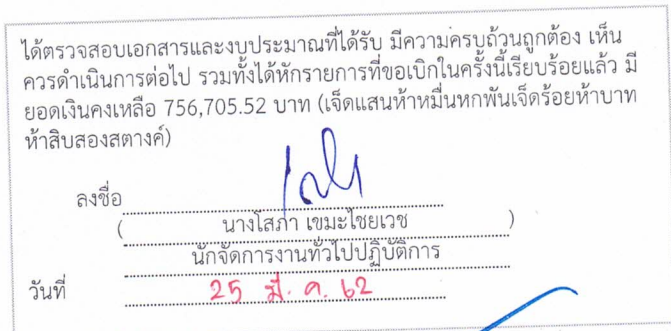 ได้ตรวจสอบเอกสารและงบประมาณที่ได้รับ มีความครบถ้วนถูกต้อง เห็น
ควรดำเนินการต่อไป รวมทั้งได้หักรายการที่ขอเบิกในครั้งนี้เรียบร้อยแล้ว มี
ยอดเงินคงเหลือ 756,705.52 บาท (เจ็ดแสนห้าหมื่นหกพันเจ็ดร้อยห้าบาท
ห้าสิบสองสตางค์)
ลงชื่อ
( นางโสภา เขมะไชยเวช )
นักจัดการงานทั่วไปปฏิบัติการ
วันที่ 25 มี.ค. 62